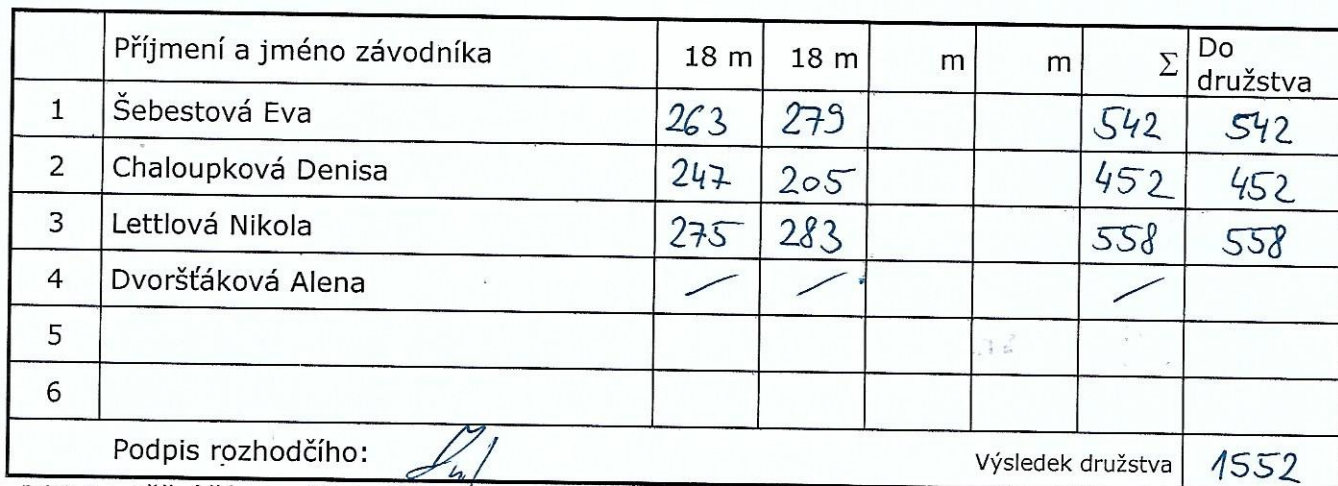 Příjmení a jméno závodníka 18 m 18 m m m Σ Do družstva
1 Šebestová Eva 263 279 542 542
2 Chaloupková Denisa 247 205 452 452
3 Lettlová Nikola 275 283 558 558
4 Dvoršťáková Alena / / /
5
6
Podpis rozhodčího: Výsledek družstva 1552